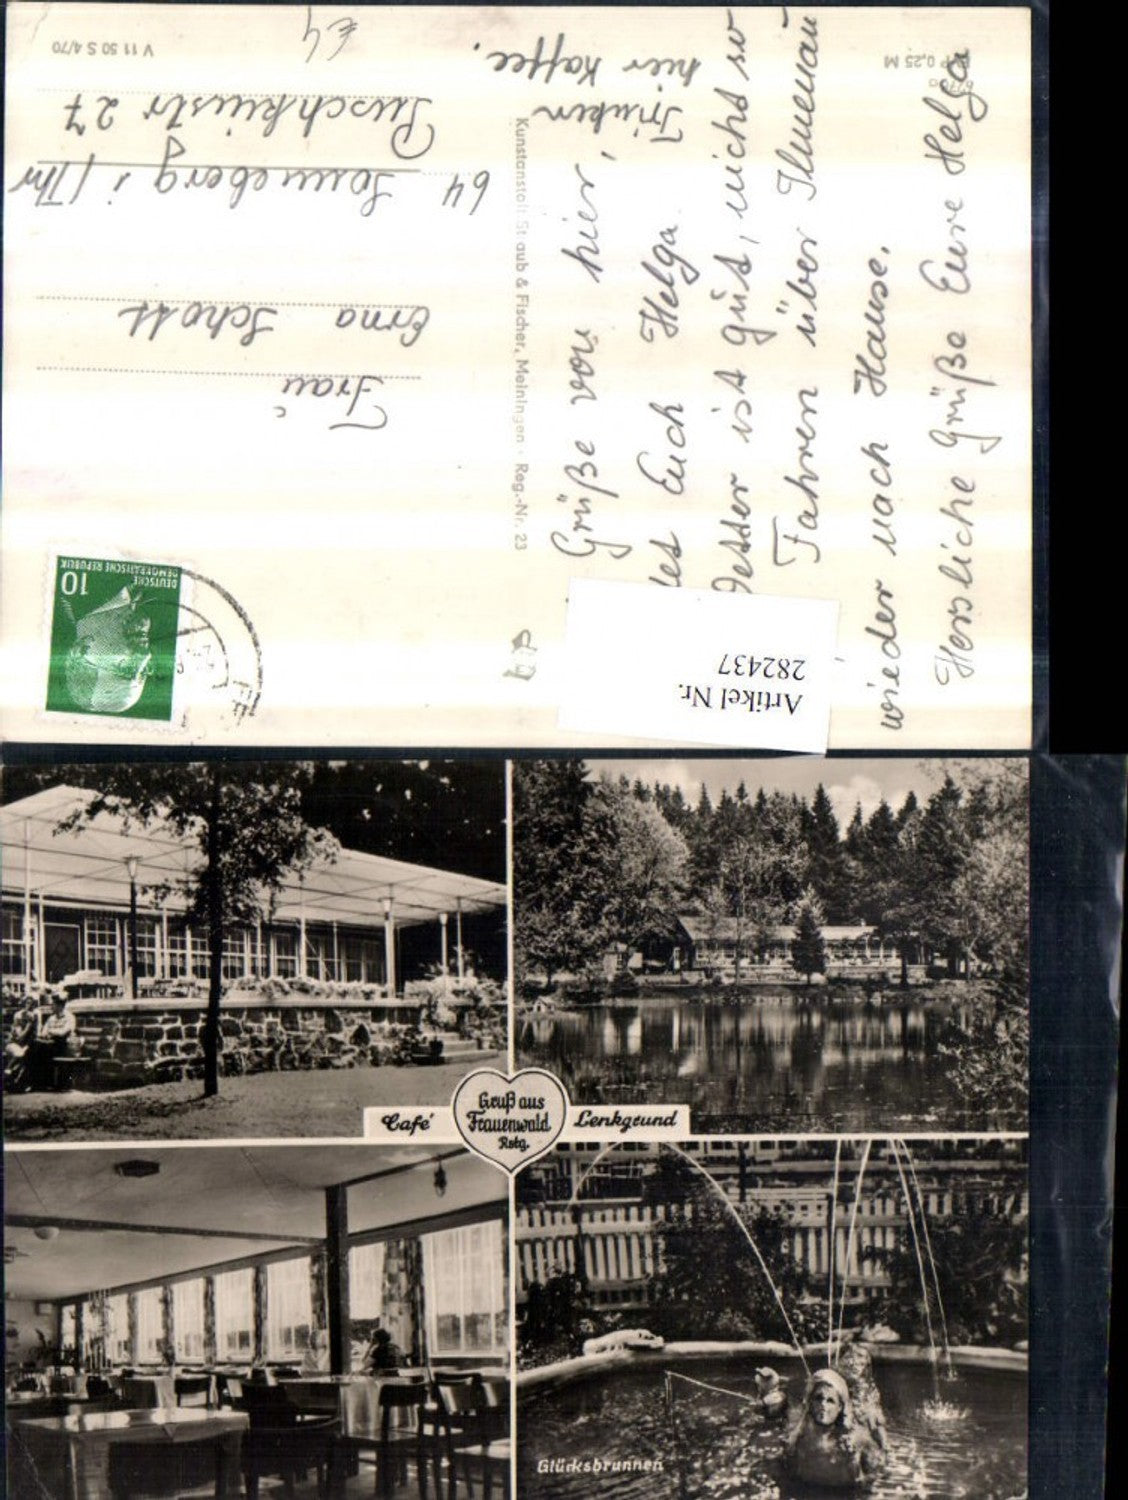 Grüße von hier,
Euch Helga. Trinken
hier Kaffee.
ist gut, nicht so
Fahren über Ilmenau
wieder nach Hause.
Herzliche Grüße Eure Helga
Kunstanstalt Straub & Fischer, Meiningen · Reg.-Nr. 23
EVP 0,25 M
V 11 50 S 4/70
€4
DEUTSCHE
DEMOKRATISCHE REPUBLIK
10
Frau
Erna Schott
64 Sonneberg i/Thr
Puschkinstr 27
Artikel Nr.
282437
Gruß aus
Frauenwald
Rstg.
Café Lenkgrund
Glücksbrunnen